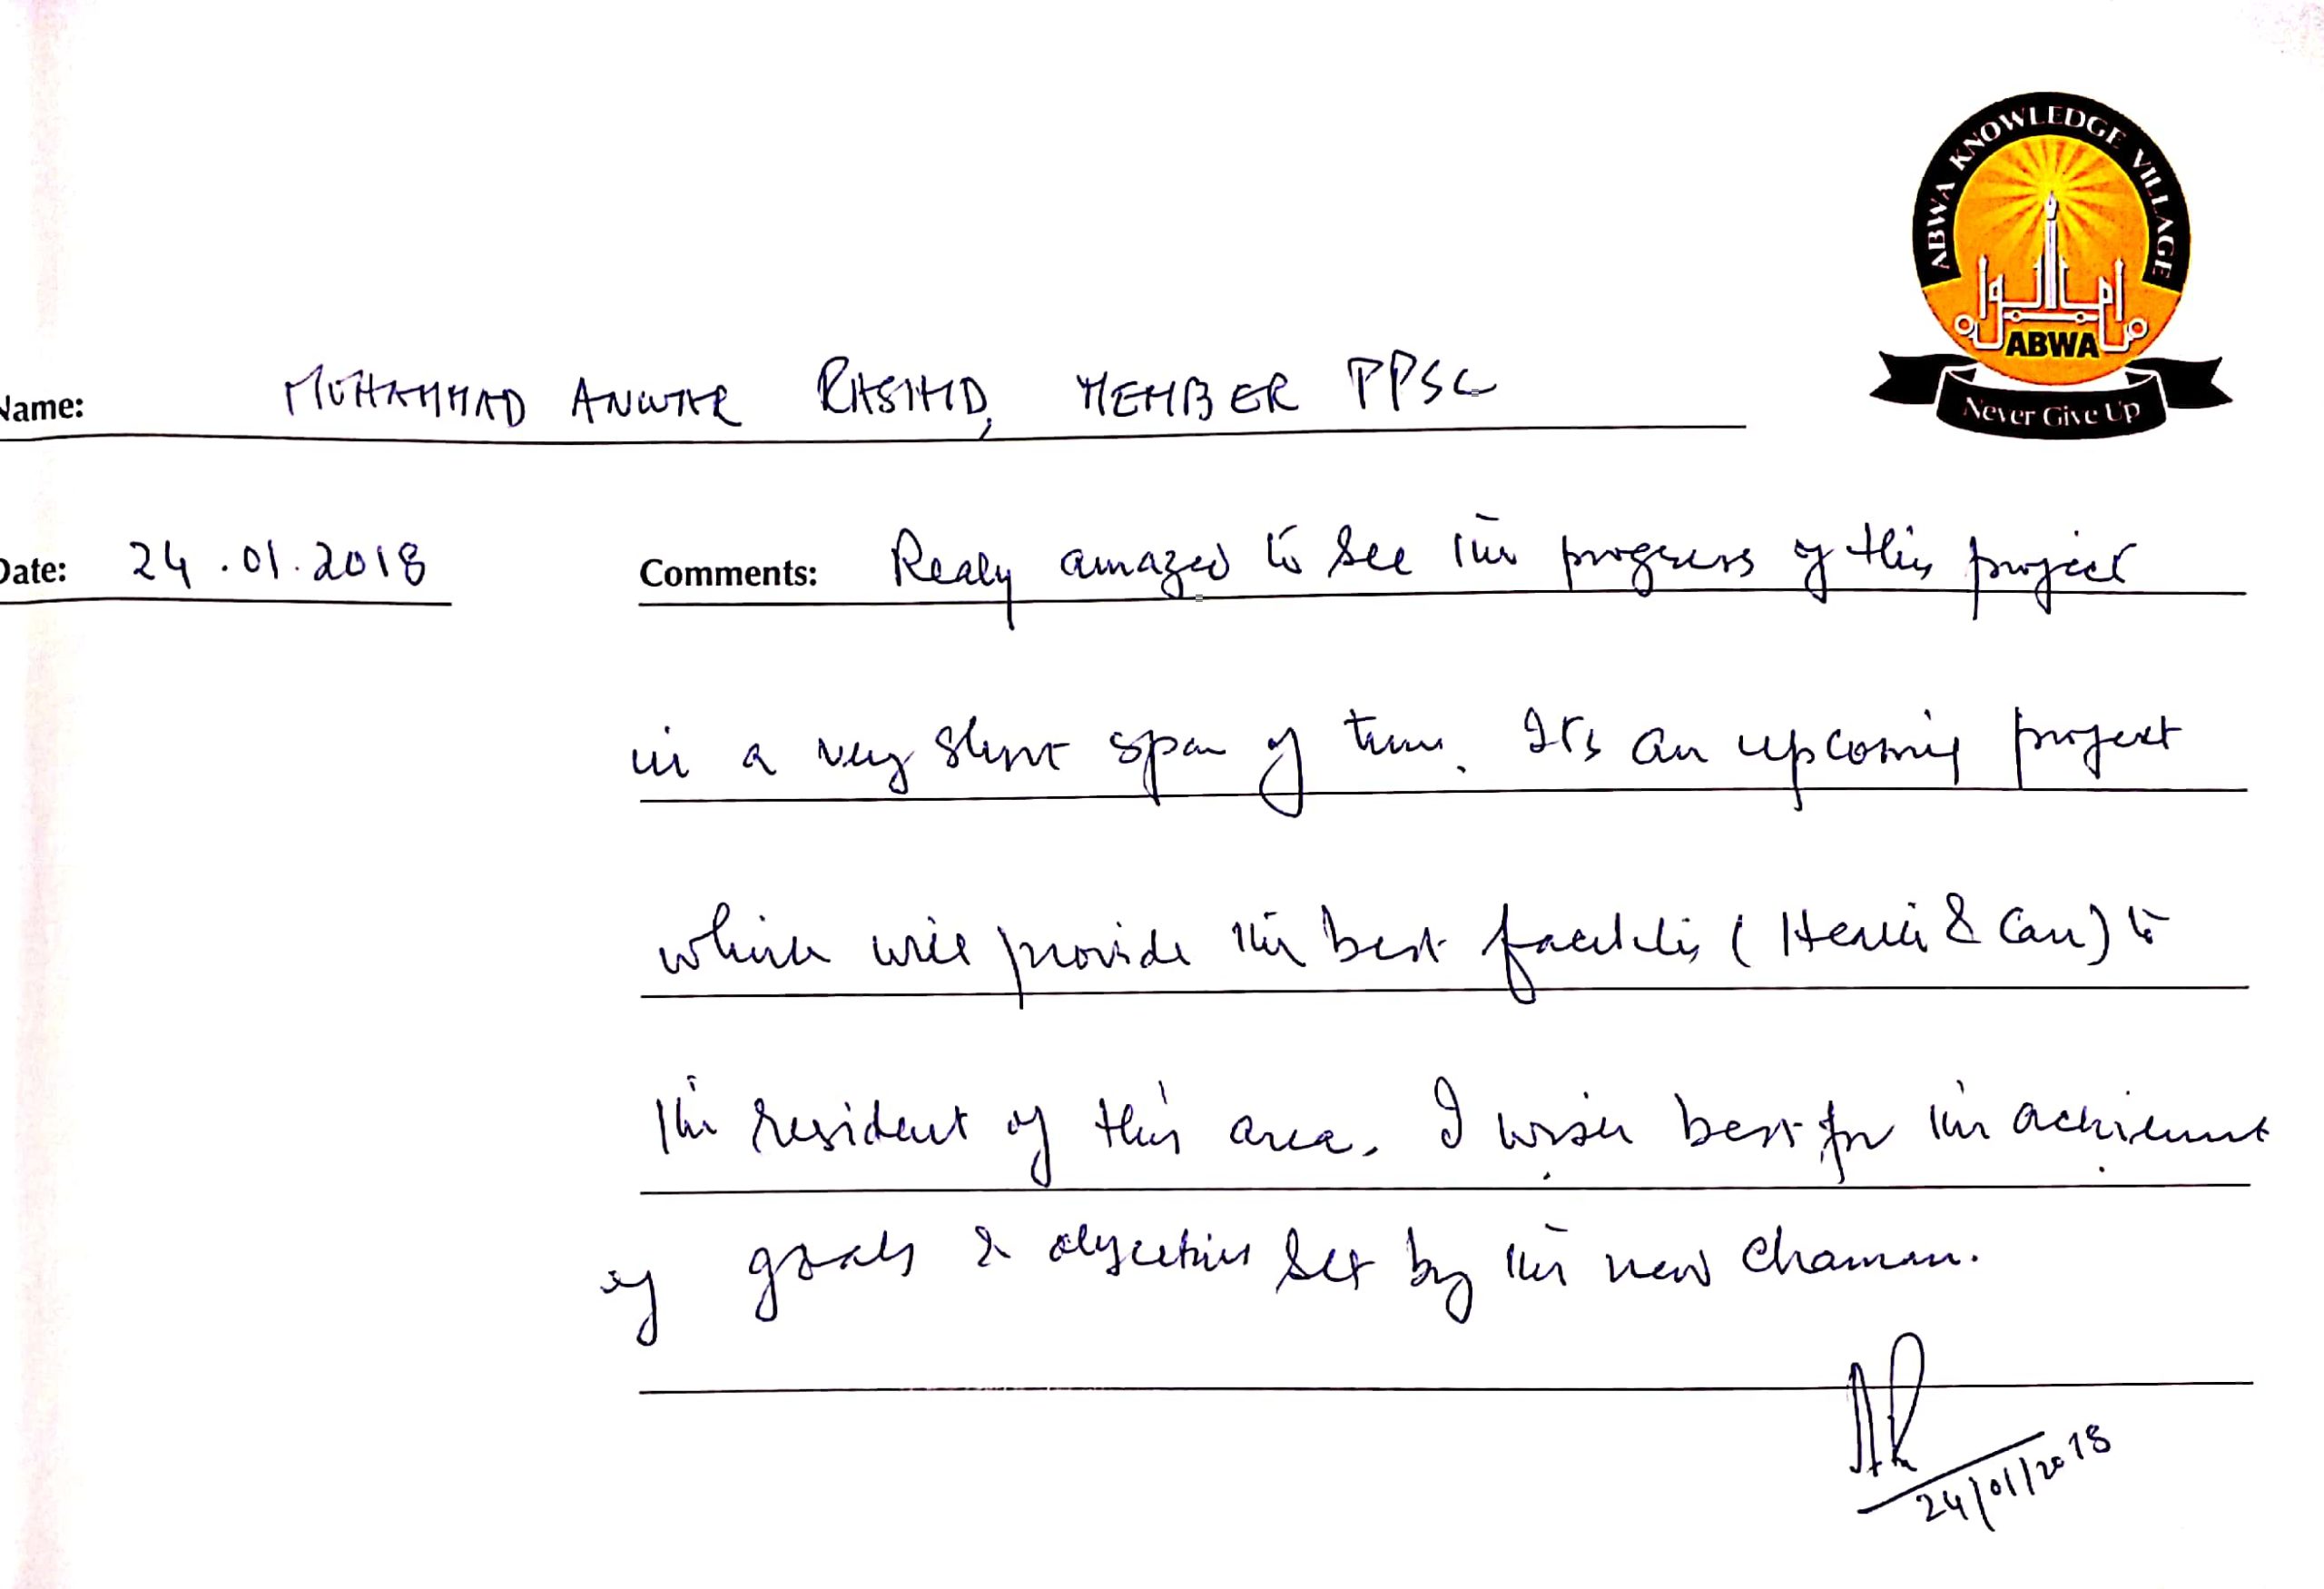 ABWA KNOWLEDGE VILLAGE
ABWA
Never Give Up
Name: MUHAMMAD ANWAR RASHID, MEMBER PPSC
Date: 24.01.2018
Comments: Realy amazed to see the progress of this project
in a very short span of time. It's an upcoming project
which will provide the best facilities (Health & Care) to
the resident of this area. I wish best for the achievement
of goals & objectives set by the new Chairman.
24/01/2018